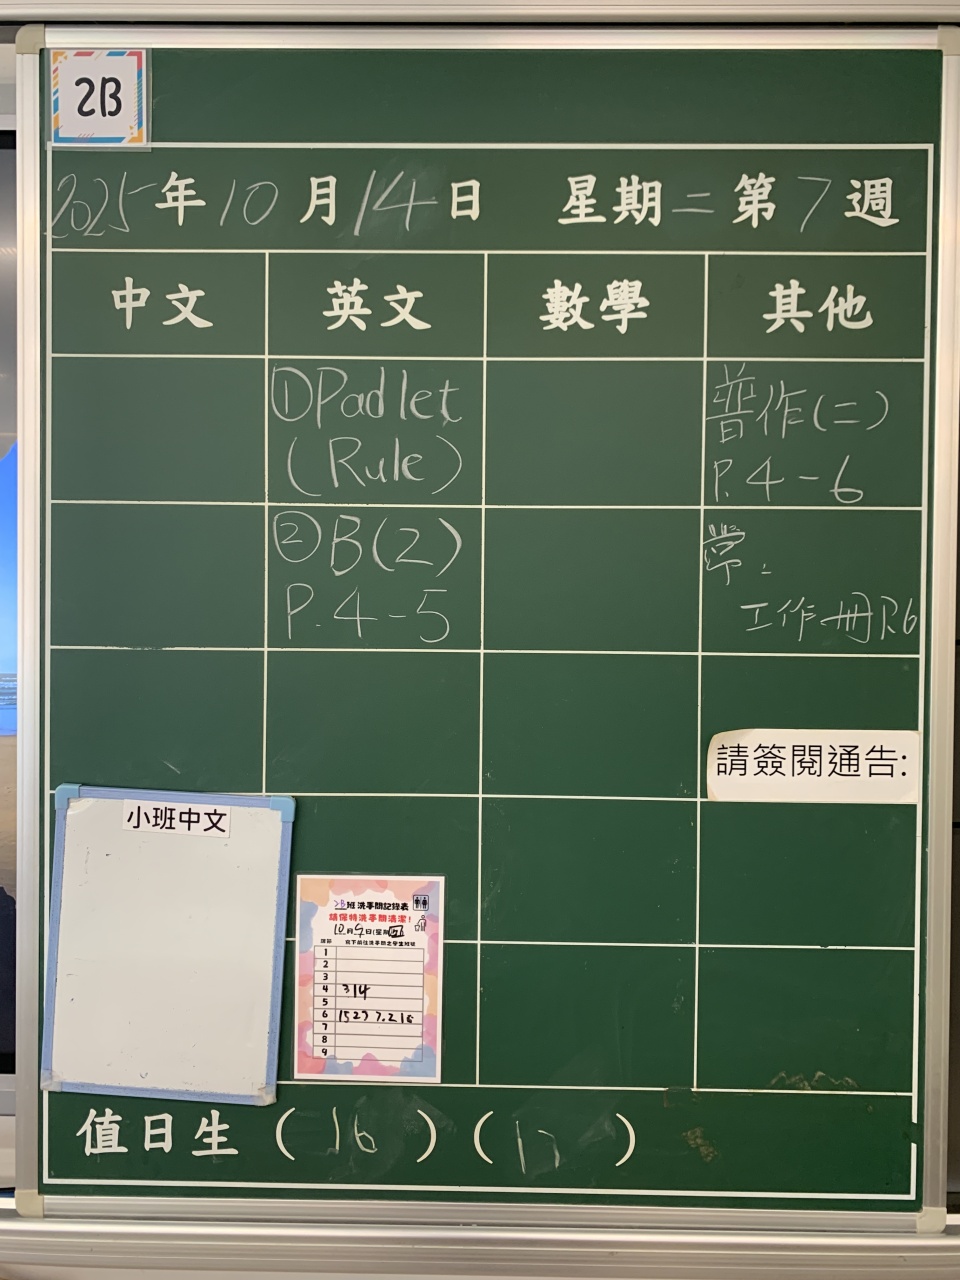 2B
2025年10月14日 星期二第7週
中文 英文 數學 其他
①Padlet
(Rule)
普作(二)
P.4-6
②B(2)
P.4-5
常.
工作冊P.6
請簽閱通告:
小班中文
2B班洗手間記錄表
請保持洗手間清潔!
10月9日(星期四)
課節 寫下前往洗手間之學生班號
1
2
3
4 314
5
6
7
8
9
值日生 (16) ( )